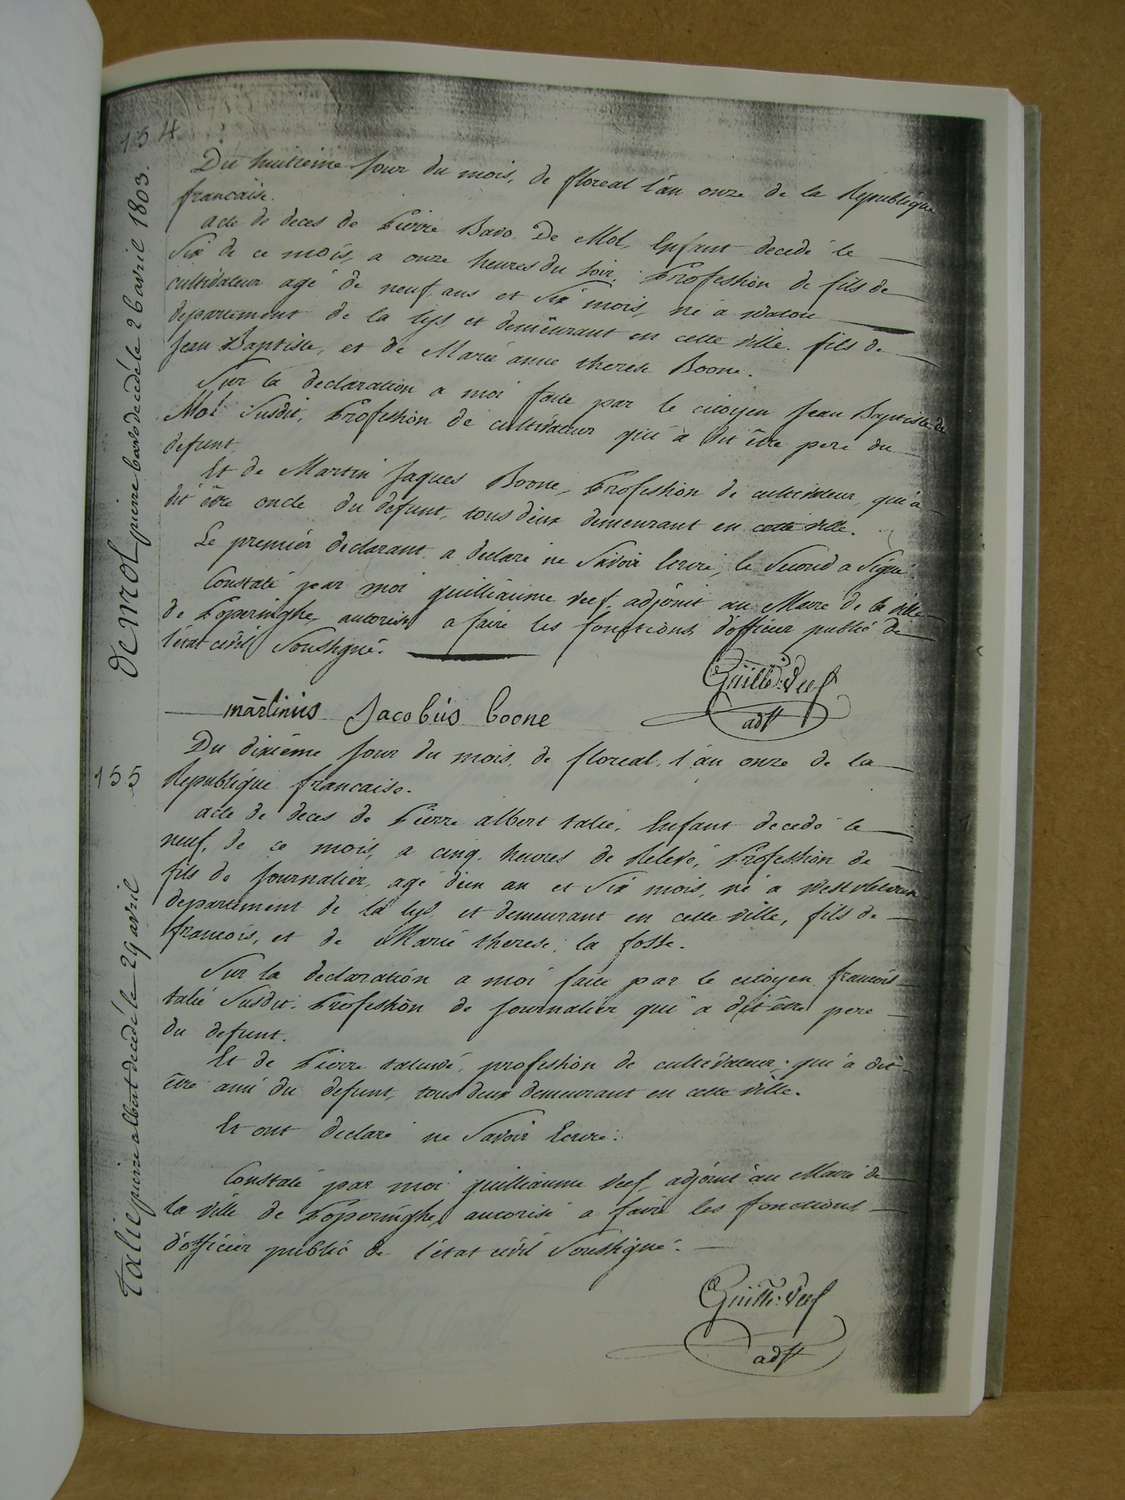 154
de mol pierre bavo decedé le 26 avril 1803.
Du huitieme jour du mois, de floreal l'an onze de la Republique
francaise.
acte de deces de Pierre Bavo De Mol, Enfant decedé le
Six de ce mois, a onze heures du soir, Profession de fils de
cultivateur agé de neuf ans et Six mois, né a watou
departement de la lys et demeurant en cette ville. fils de
Jean Baptiste, et de Marie anne therese Boone.
Sur la declaration a moi faite par le citoyen Jean Baptiste de
Mol Susdit, Profession de cultivateur qui a dit être pere du
defunt.
Et de Martin Jaques Boone, Profession de cultivateur, qui a
dit être oncle du defunt, tous deux demeurant en cette ville.
Le premier declarant a declaré ne Savoir Ecrire, le Second a Signé
Constaté par moi guilliaume veef adjoint au Maire de la ville
de Poperinghe, autorisé a faire les fonctions d'officier public de
l'état civil Soussigné.
Guille: Veef
adjt
martinus Jacobus boone
155
talie pierre albert decedé le 29 avril
Du dixiéme jour du mois, de floreal, l'an onze de la
Republique francaise.
acte de deces de Pierre albert talie, Enfant decedé le
neuf, de ce mois, a cinq heures de Relevé, Profession de
fils de Journalier, agé d'un an et Six mois, né a westvleteren
departement de la lys, et demeurant en cette ville, fils de
francois, et de Marie therese la fosse.
Sur la declaration a moi faite par le citoyen francois
talié Susdit. Profession de Journalier qui a dit être pere
du defunt.
Et de Pierre profession de cultivateur, qui a dit
être ami du defunt, tous deux demeurant en cette ville.
Et ont declaré ne Savoir Ecrire.
Constaté par moi guilliaume veef, adjoint au Maire de
la ville de Poperinghe, autorisé a faire les fonctions
d'officier public de l'état civil Soussigné.
Guille: Veef
adjt